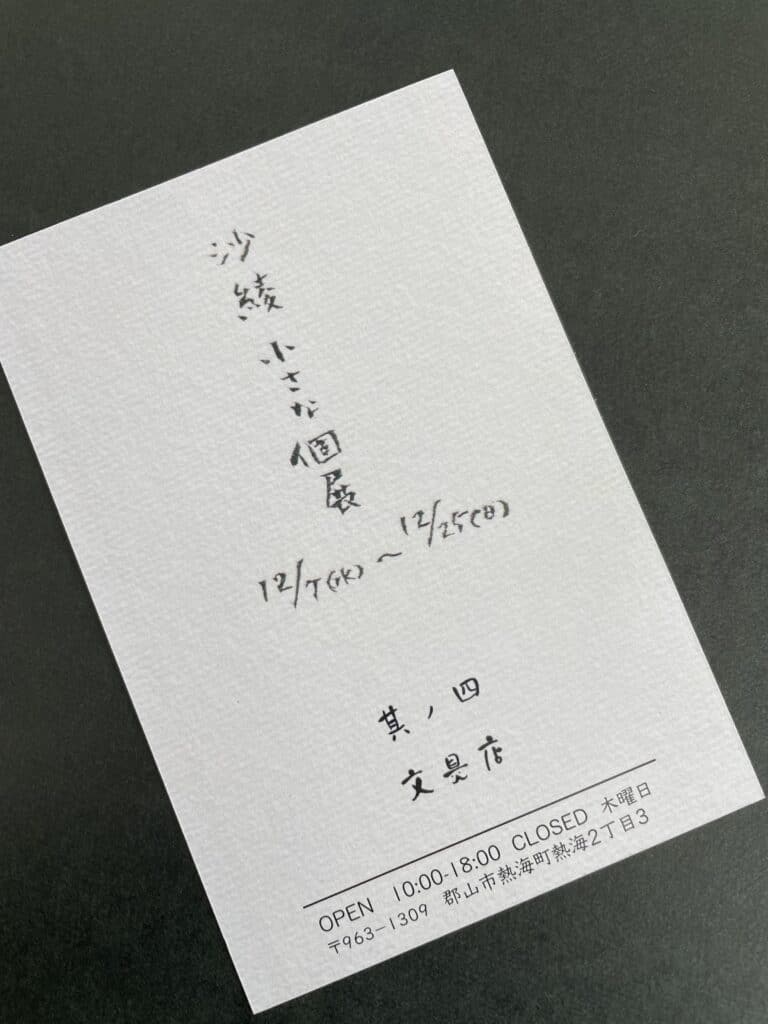 沙綾 小さな個展
12/7(水)～12/25(日)
其ノ四
文具店
OPEN 10:00-18:00 CLOSED 木曜日
〒963-1309 郡山市熱海町熱海2丁目3